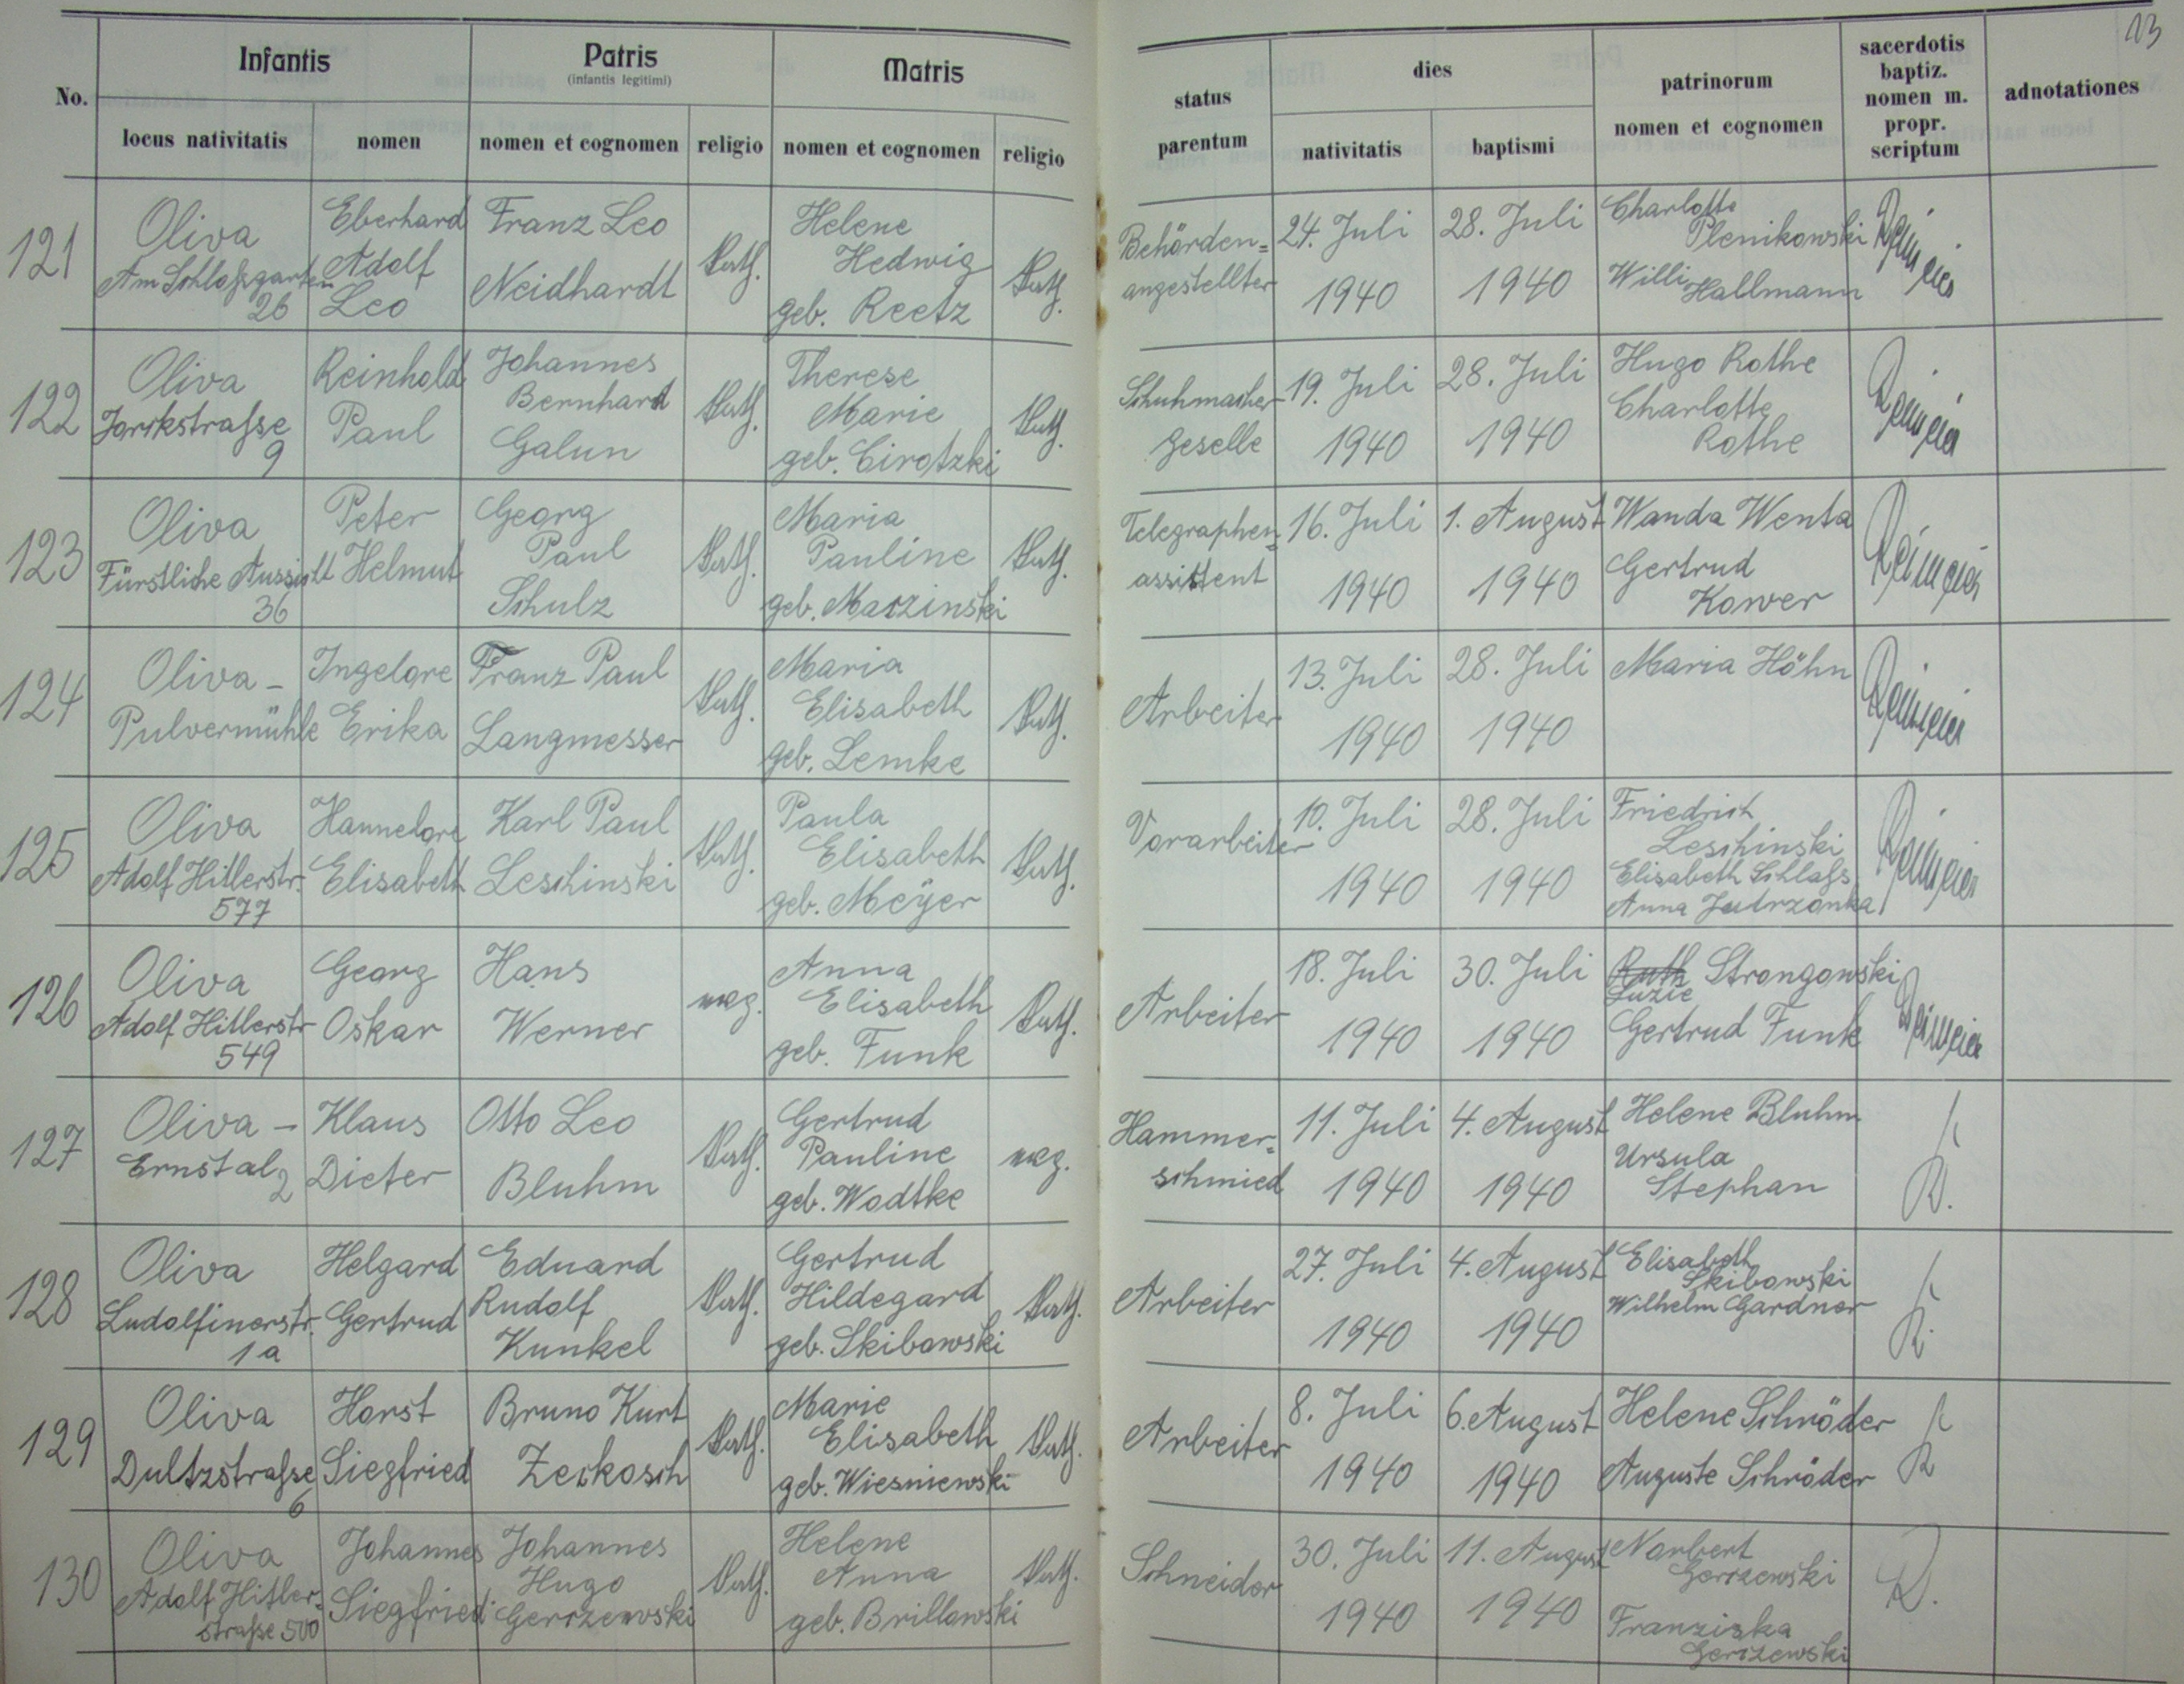 13
No. Infantis Patris Matris status parentum dies patrinorum nomen et cognomen sacerdotis baptiz. nomen m. propr. scriptum adnotationes
(infantis legitimi)
locus nativitatis nomen nomen et cognomen religio nomen et cognomen religio nativitatis baptismi
121 Oliva Am Schloßgarten 26 Eberhard Adolf Leo Franz Leo Neidhardt kath. Helene Hedwig geb. Reetz kath. Behörden= angestellter 24. Juli 1940 28. Juli 1940 Charlotte Plenikowski Willi Hallmann
122 Oliva Jorkstraße 9 Reinhold Paul Johannes Bernhard Galun kath. Therese Marie geb. Cirotzki kath. Schuhmacher geselle 19. Juli 1940 28. Juli 1940 Hugo Rothe Charlotte Rothe
123 Oliva Fürstliche Aussicht 36 Peter Helmut Georg Paul Schulz kath. Maria Pauline geb. Marzinski kath. Telegraphen= assistent 16. Juli 1940 1. August 1940 Wanda Wenta Gertrud Kower
124 Oliva - Pulvermühle Ingelore Erika Franz Paul Langmesser kath. Maria Elisabeth geb. Lemke kath. Arbeiter 13. Juli 1940 28. Juli 1940 Maria Höhn
125 Oliva Adolf Hitlerstr. 577 Hannelore Elisabeth Karl Paul Leschinski kath. Paula Elisabeth geb. Meÿer kath. Vorarbeiter 10. Juli 1940 28. Juli 1940 Friedrich Leschinski Elisabeth Schlaß Anna Jadrzonka
126 Oliva Adolf Hitlerstr 549 Georg Oskar Hans Werner evg. Anna Elisabeth geb. Funk kath. Arbeiter 18. Juli 1940 30. Juli 1940 Ruth Strongowski Luzie Gertrud Funk
127 Oliva - Ernstal 2 Klaus Dieter Otto Leo Bluhm kath. Gertrud Pauline geb. Wodtke evg. Hammer= schmied 11. Juli 1940 4. August 1940 Helene Bluhm Ursula Stephan
128 Oliva Ludolfinerstr. 1a Helgard Gertrud Eduard Rudolf Kunkel kath. Gertrud Hildegard geb. Skibowski kath. Arbeiter 27. Juli 1940 4. August 1940 Elisabeth Skibowski Wilhelm Gardner K.
129 Oliva Dultzstraße 6 Horst Siegfried Bruno Kurt Zeckosch kath. Marie Elisabeth geb. Wiesniewski kath. Arbeiter 8. Juli 1940 6. August 1940 Helene Schröder Auguste Schröder K
130 Oliva Adolf Hitler= straße 500 Johannes Siegfried Johannes Hugo Gerczewski kath. Helene Anna geb. Brillowski kath. Schneider 30. Juli 1940 11. August 1940 Norbert Gerczewski Franziska Gerczewski